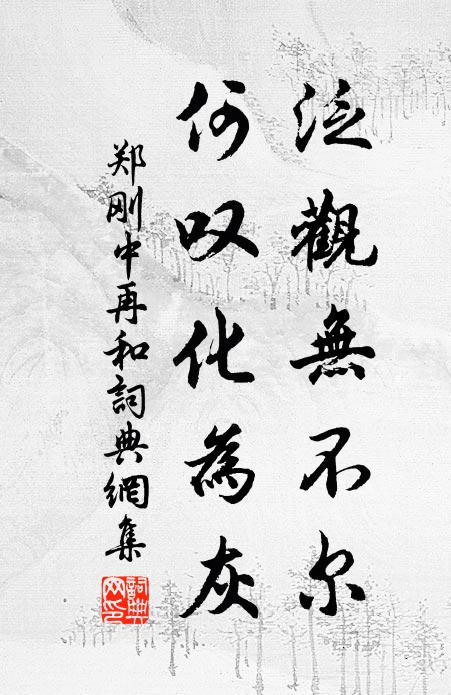 泛觀無不尔
何叹化為灰
郑刚中再和詞典網集
詞典網印